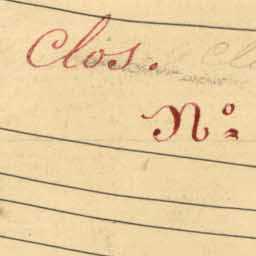 Clos.
Nº